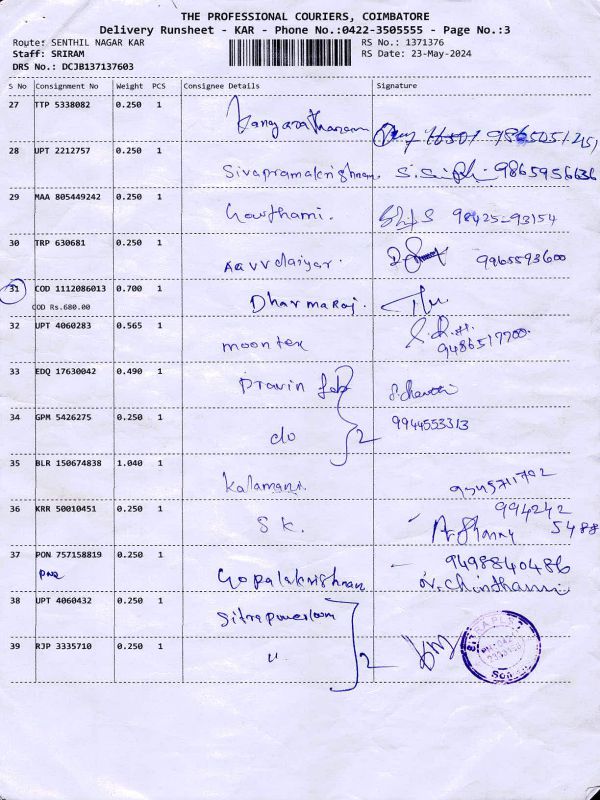 THE PROFESSIONAL COURIERS, COIMBATORE
Delivery Runsheet - KAR - Phone No.:0422-3505555 - Page No.:3
Route: SENTHIL NAGAR KAR RS No.: 1371376
Staff: SRIRAM RS Date: 23-May-2024
DRS No.: DCJB137137603
S No Consignment No Weight PCS Consignee Details Signature
27 TTP 5338082 0.250 1
28 UPT 2212757 0.250 1
Sivapramakrishnan 9865956636
29 MAA 805449242 0.250 1
Gowthami. 98425-93154
30 TRP 630681 0.250 1
Aavudaiyar. 9965593600
31 COD 1112086013 0.700 1
COD Rs.680.00 Dharmaraj.
32 UPT 4060283 0.565 1
moontex 9486517700.
33 EDQ 17630042 0.490 1
Pravin fab
34 GPM 5426275 0.250 1
do 2 9944553313
35 BLR 150674838 1.040 1
Kalamani.
36 KRR 50010451 0.250 1
S K. 994242
5488
37 PON 757158819 0.250 1
PNQ Gopalakrishnan 9498840486
N. Chinthami
38 UPT 4060432 0.250 1
Sitrapowerloom
39 RJP 3335710 0.250 1
" 2